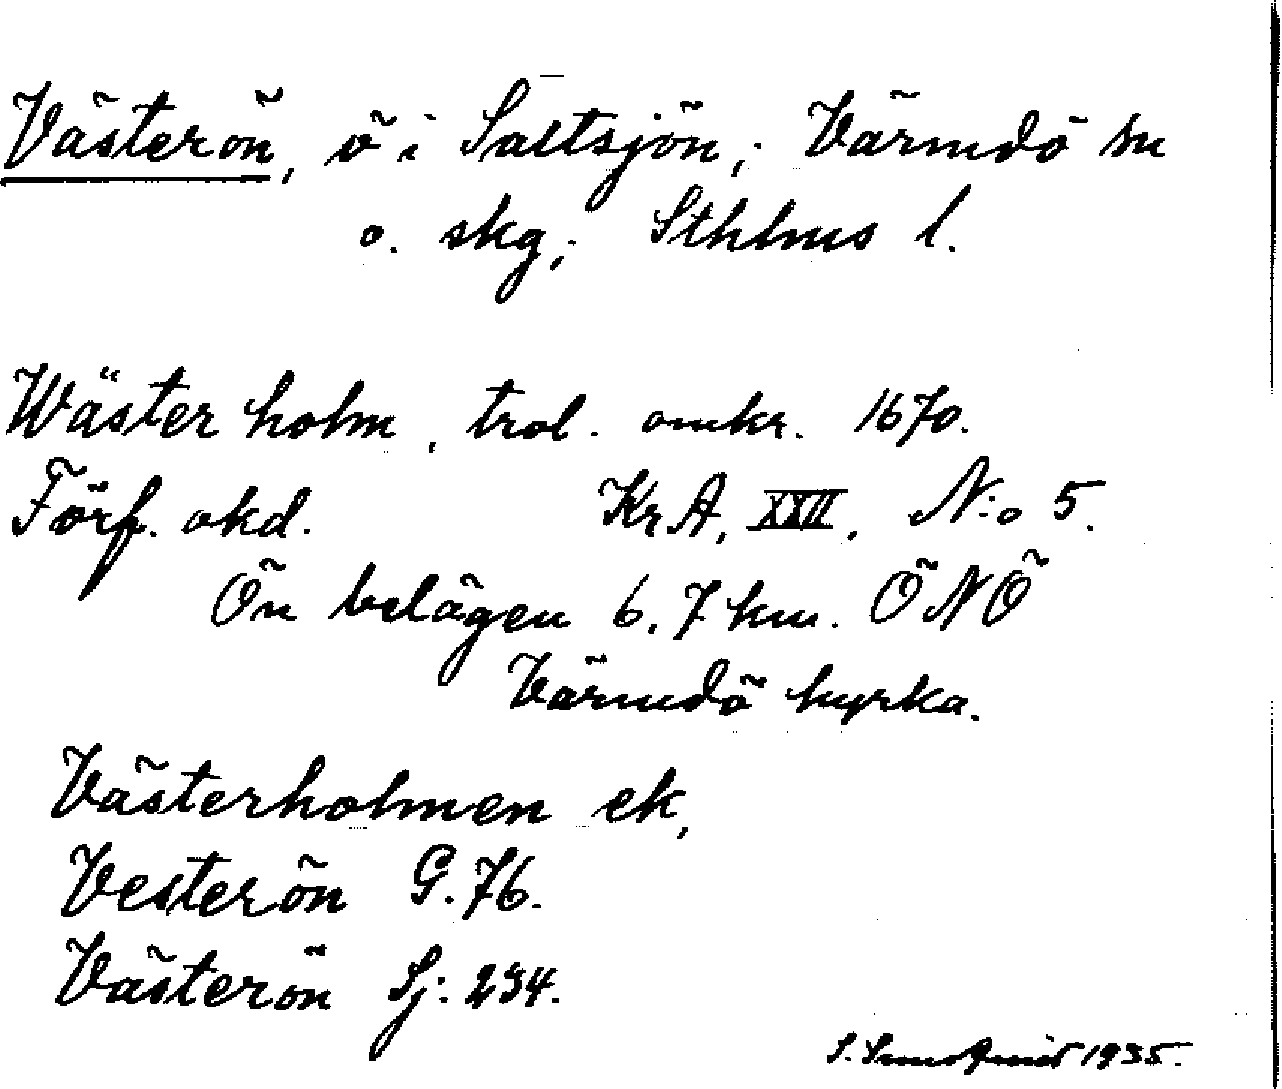 Västerön, ö i Saltsjön; Värmdö sn
o. skg; Sthlms l.
Wäster holm, trol. omkr. 1670.
Förf. okd. KrA, XXII, N:o 5.
Ön belägen 6,7 km. ÖNÖ
Värmdö kyrka.
Västerholmen ek,
Vesterön G. 76.
Västerön Sj: 234.
S. 1935.